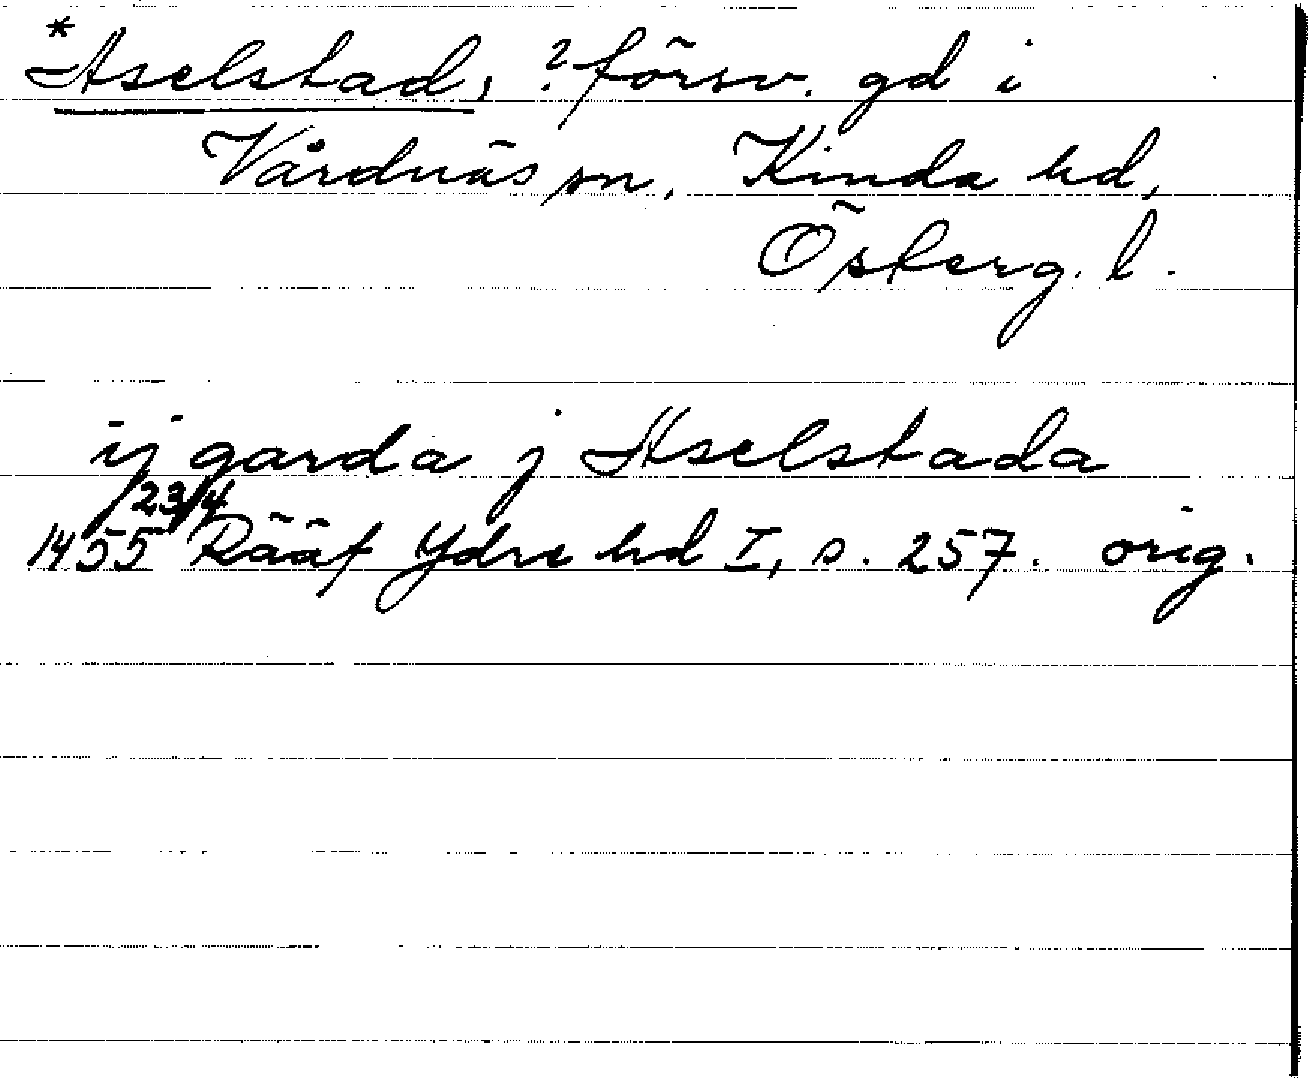 *Aselstad, ?försv. gd i
Vårdnäs sn, Kinda hd,
Österg. l.
ij garda j Aselstada
1455 23/4 Rääf Ydre hd I, s. 257. orig.